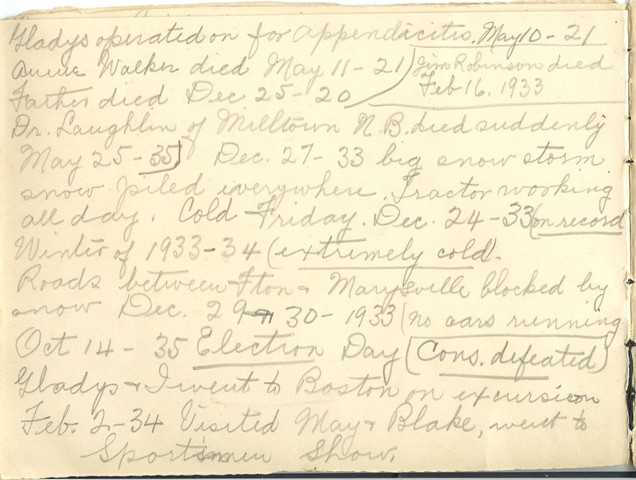 Gladys operated on for appendicites. May 10 - 21
Annie Walker died May 11 - 21) Jim Robinson died
Feb 16. 1933
Father died Dec 25 - 20
Dr. Laughlin of Milltown N.B. died suddenly
May 25 - 35) Dec. 27 - 33 big snow storm
snow piled everywhere. Tractor working
all day. Cold Friday. Dec. 24 - 33 (on record
Winter of 1933-34 (extremely cold.
Roads between Fton & Marysville blocked by
snow Dec. 29 30 - 1933 (no cars running
Oct 14 - 35 Election Day (Cons. defeated)
Gladys & I went to Boston on excursion
Feb. 2-34 Visited May & Blake, went to
Sportsmen Show.